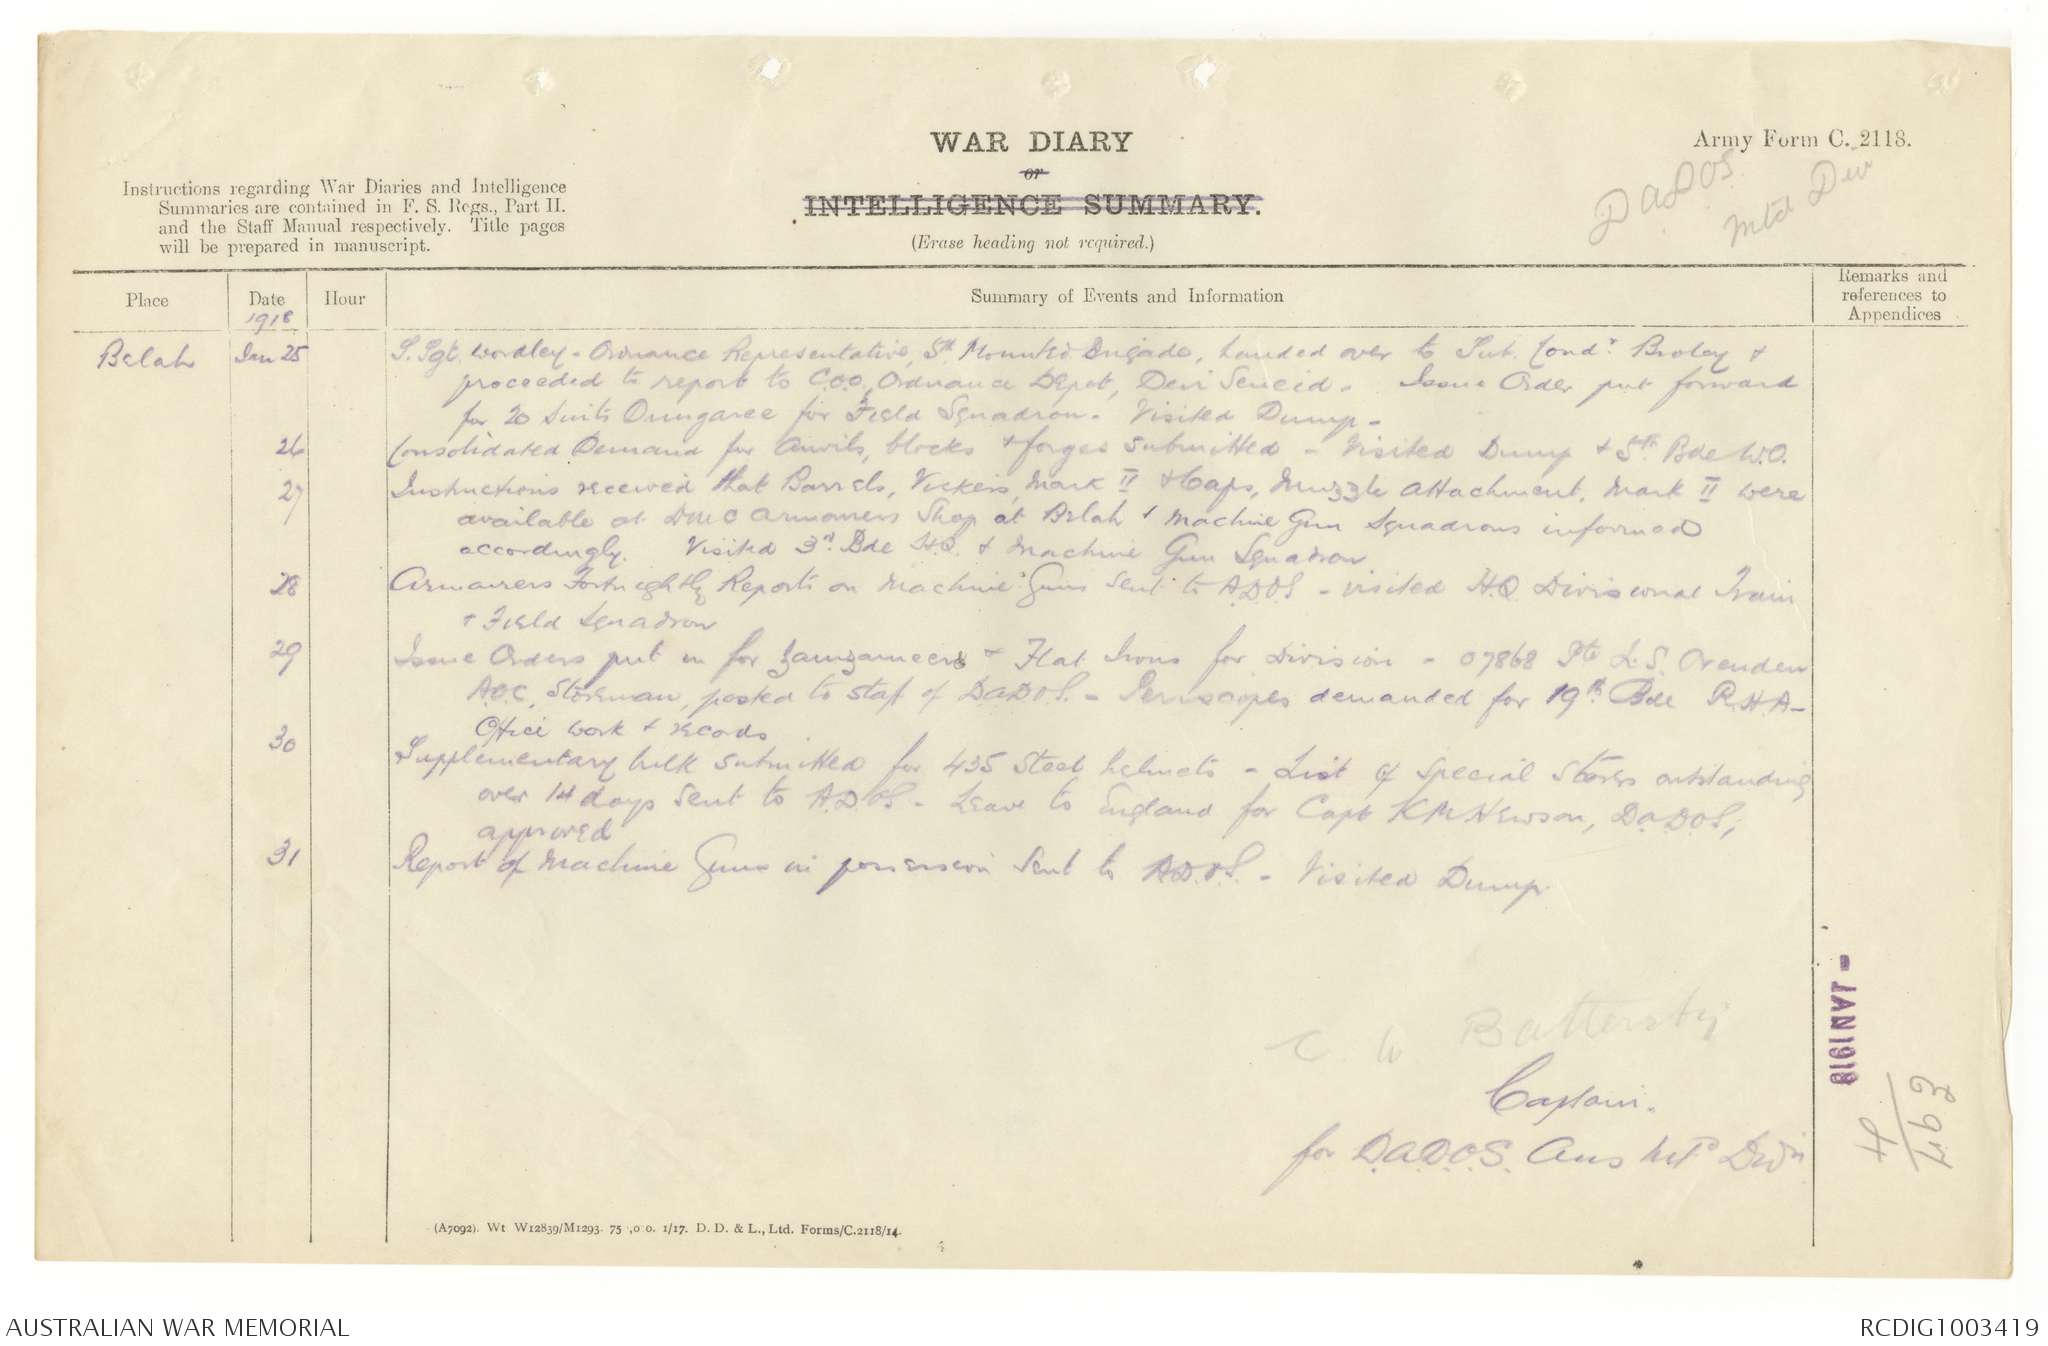 WAR DIARY
or
INTELLIGENCE SUMMARY.
(Erase heading not required.)
Army Form C. 2118.
DADOS
Mtd Div
Instructions regarding War Diaries and Intelligence
Summaries are contained in F. S. Regs., Part II.
and the Staff Manual respectively. Title pages
will be prepared in manuscript.
Place
Date
1918
Hour
Summary of Events and Information
Remarks and
references to
Appendices
Belah Jan 25 S. Sgt. Wordley - Ordnance Representative, 5th Mounted Brigade, handed over to Sub. Condr. &
proceeded to report to C.O.O, Ordnance Depot, Deir Seneid - Issue Order put forward
for 20 Suits Dungaree for Field Squadron - Visited Dump -
26 Consolidated Demand for Anvils, blocks & forges submitted - Visited Dump & 5th Bde W.O.
27 Instructions received that Barrels, Vickers, Mark II & Caps, Muzzle Attachment, Mark II were
available at DMC Armourers Shop at Belah & Machine Gun Squadrons informed
accordingly. Visited 3rd Bde H.Q. & Machine Gun Squadron
28 Armourers Fortnightly Reports on Machine Guns sent to A.D.O.S - visited H.Q. Divisional Train
& Field Squadron
29 Issue Orders put in for & Flat Irons for Division - 07868 Pte L.S. Ovenden
A.O.C, Storeman, posted to staff of DADOS. - Periscopes demanded for 19th Bde R.H.A -
Office work & records
30 Supplementary bulk submitted for 435 Steel helmets - List of Special Stores outstanding
over 14 days sent to A.D.O.S - Leave to England for Capt K M Hewson, DADOS,
approved
31 Report of Machine Guns in possession sent to A.D.O.S. - Visited Dump.
C. W Battersby
Captain.
for D.A.D.O.S. Aus Mtd Divn
- JAN 1918
4/463
(A7092). Wt W12839/M1293. 75 ,0 0. 1/17. D. D. & L., Ltd. Forms/C.2118/14.
AUSTRALIAN WAR MEMORIAL
RCDIG1003419